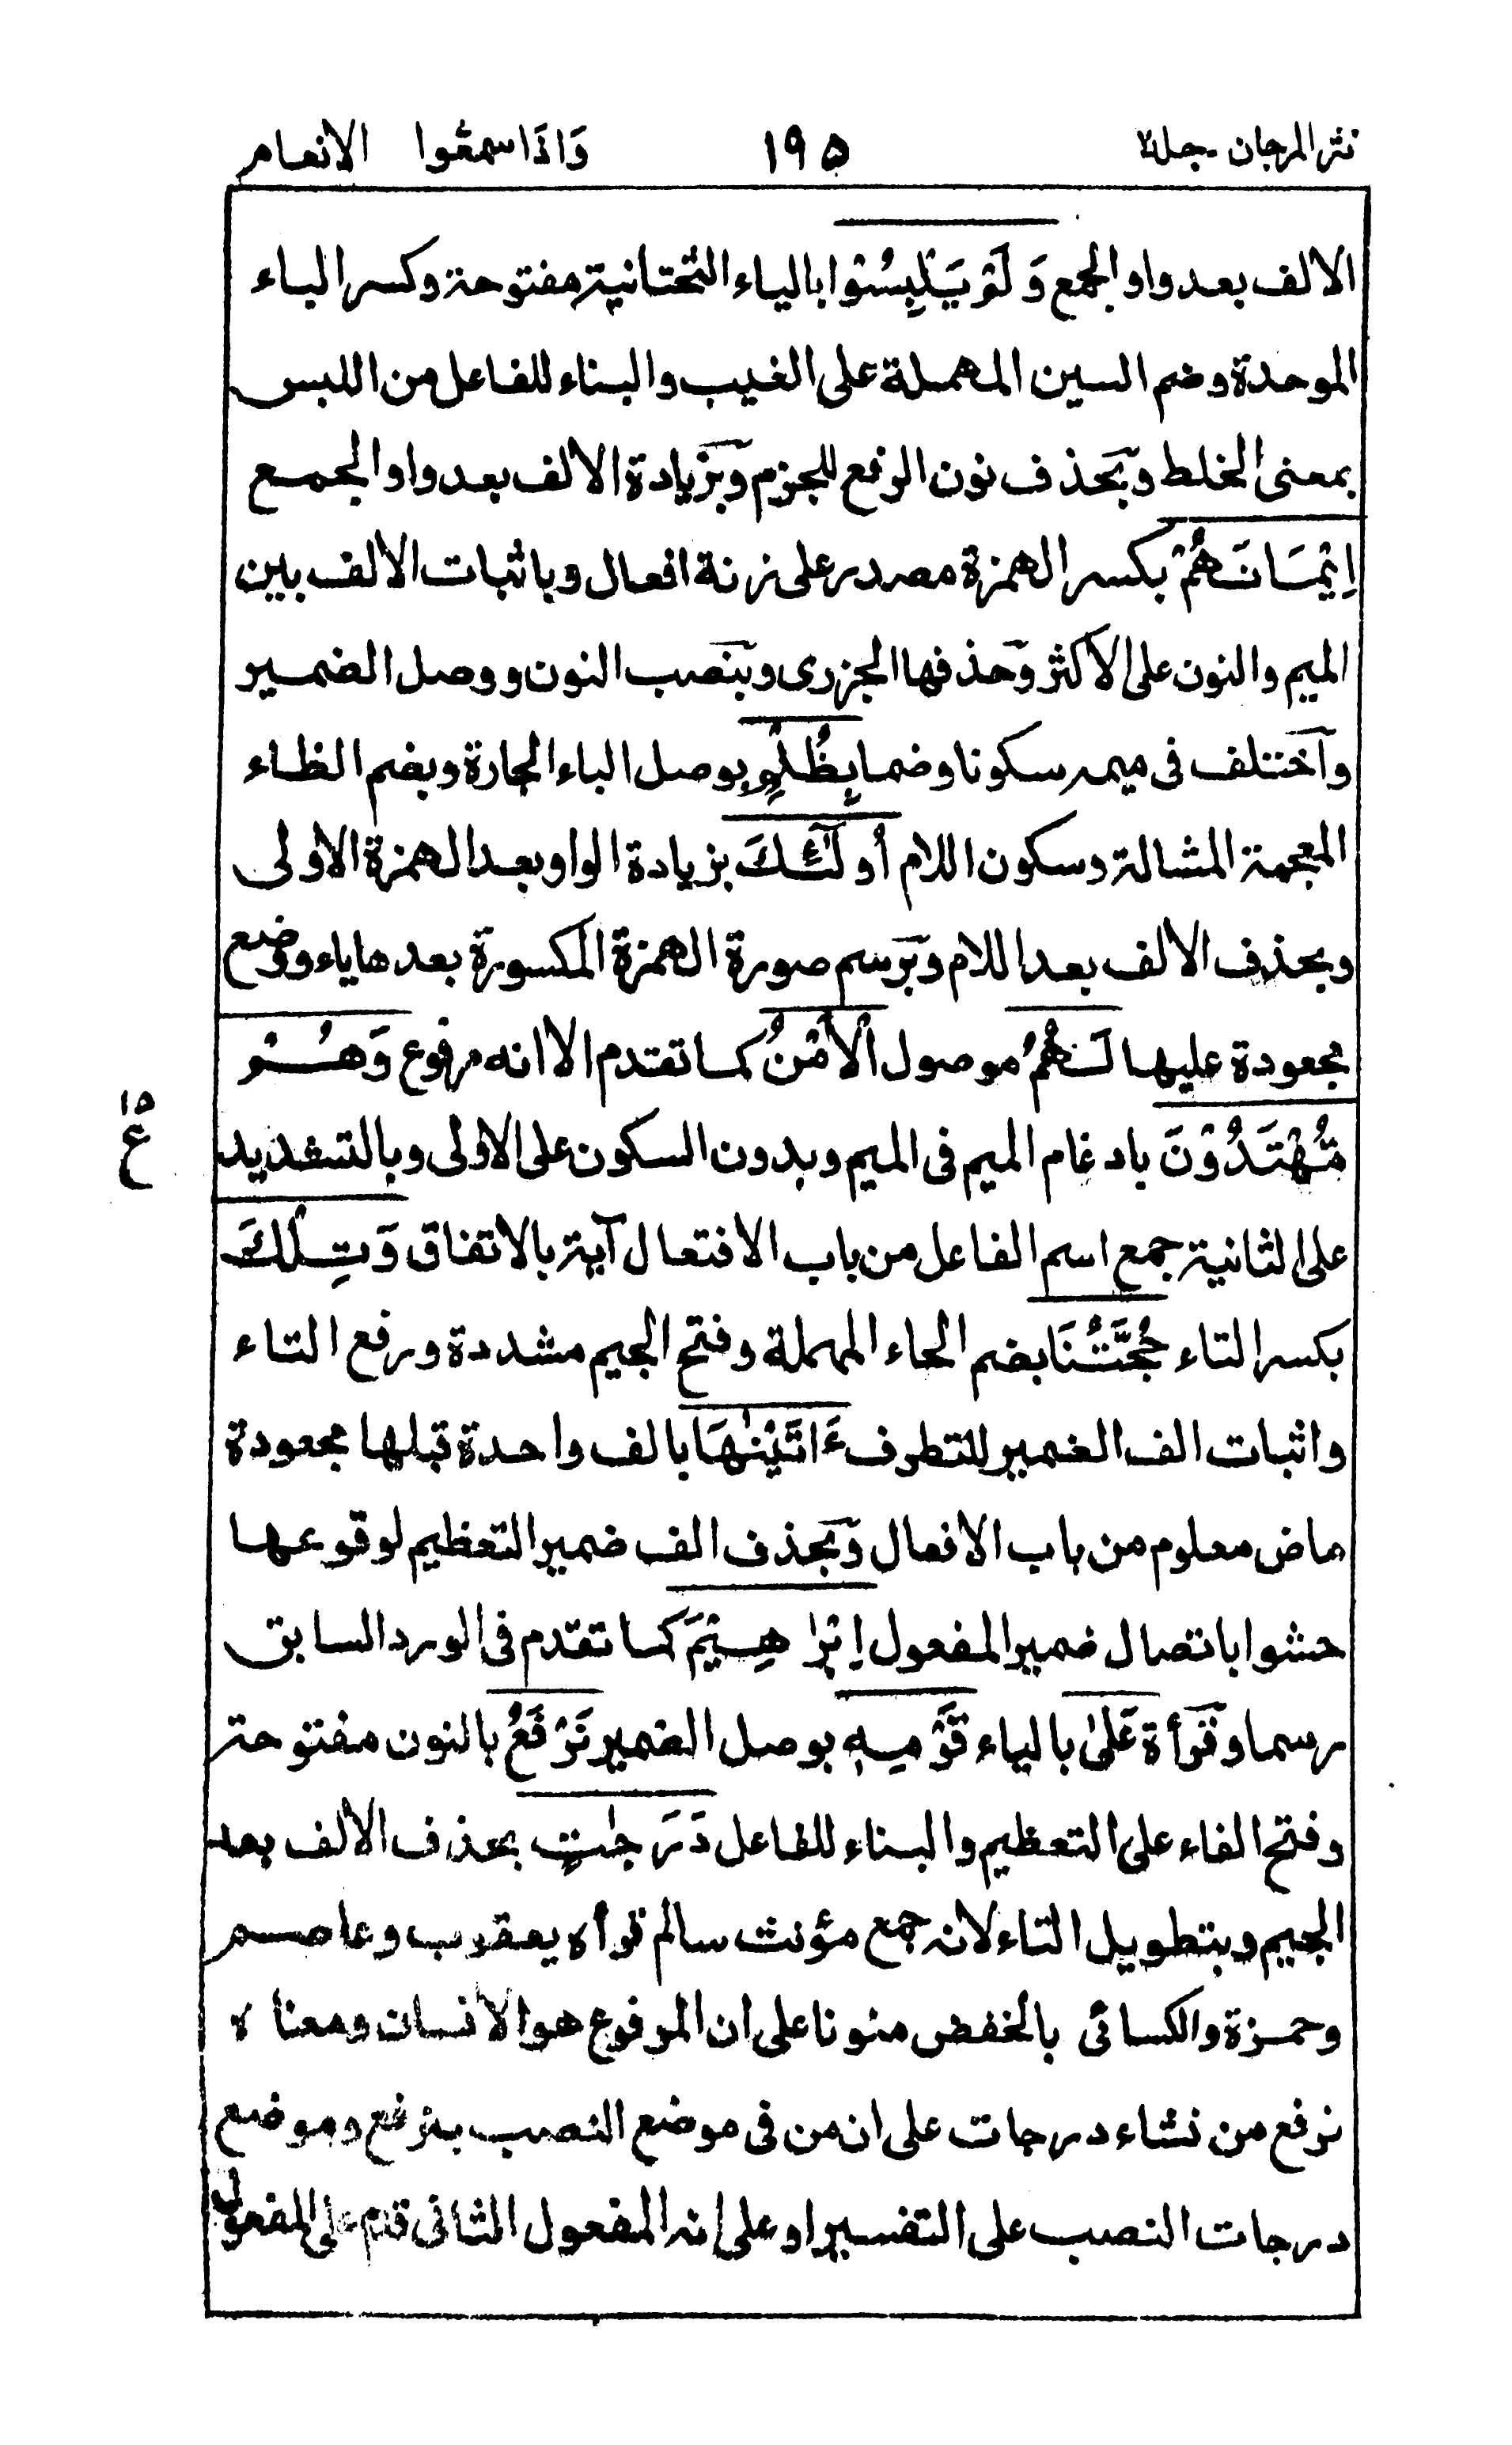 نثر المرجان - جلد٢ ١٩٥ وَاذَا سمعوا الانعام
الالف بعد واو الجمع وَلَمْ يَلْبِسُوْا بالياء التحتانية مفتوحة وكسر الباء
الموحدة وضم السين المهملة على الغيب والبناء للفاعل من اللبس
بمعنى الخلط وبحذف نون الرفع للجزم وبزيادة الالف بعد واو الجمع
اِيْمَانَهُمْ بكسر الهمزة مصدر على زنة افعال وباثبات الالف بين
الميم والنون على الاكثر وحذفها الجزرى وبنصب النون ووصل الضمير
واختلف فى ميمه سكونا وضما بِظُلْمٍ بوصل الباء الجارة وبضم الظاء
المعجمة المشالة وسكون اللام أُولٰٓئِكَ بزيادة الواو بعد الهمزة الاولى
وبحذف الالف بعد اللام وبرسم صورة الهمزة المكسورة بعدها ياء ووضع
مجعودة عليها لَهُمُ موصول الْاَمْنُ كما تقدم الا انه مرفوع وَهُمْ
مُّهْتَدُوْنَ بادغام الميم فى الميم وبدون السكون على الاولى وبالتشديد
١٥
ع
على الثانية جمع اسم الفاعل من باب الافتعال آية بالاتفاق وَتِلْكَ
بكسر التاء حُجَّتُنَا بضم الحاء المهملة وفتح الجيم مشددة ورفع التاء
واثبات الف الضمير للتطرف ءَاتَيْنٰهَا بالف واحدة قبلها مجعودة
ماض معلوم من باب الافعال وبحذف الف ضمير التعظيم لوقوعها
حشوا باتصال ضمير المفعول اِبْرٰهِيْمَ كما تقدم فى الورد السابق
رسما وقرأة عَلٰى بالياء قَوْمِهٖ بوصل الضمير نَرْفَعُ بالنون مفتوحة
وفتح الفاء على التعظيم والبناء للفاعل دَرَجٰتٍ بحذف الالف بعد
الجيم وبتطويل التاء لانه جمع مؤنث سالم قرأه يعقوب وعاصم
وحمزة والكسائى بالخفض منونا على ان المرفوع هو الانسان ومعناه
نرفع من نشاء درجات على ان من فى موضع النصب بنرفع وموضع
درجات النصب على التفسير او على انه المفعول الثانى قدم على المفعول